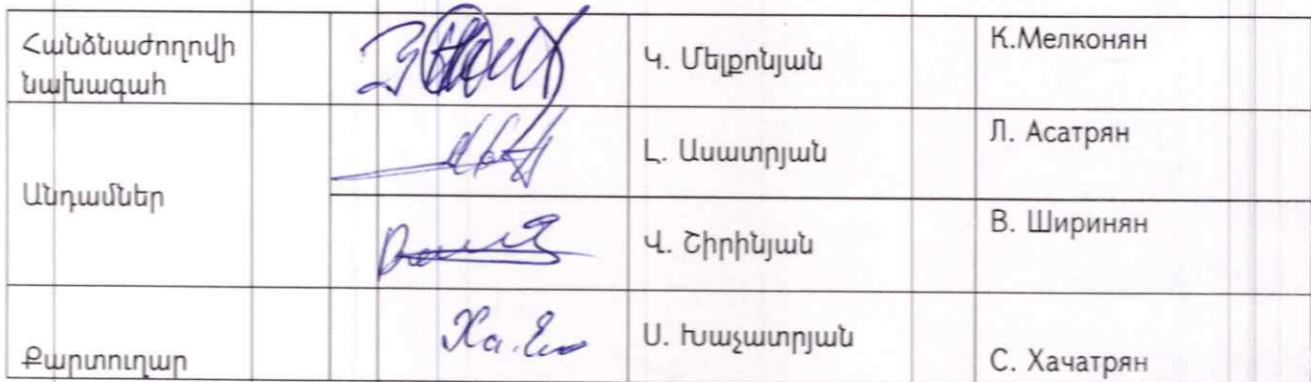 Հանձնաժողովի
նախագահ
Կ. Մելքոնյան
К.Мелконян
Անդամներ
Լ. Ասատրյան
Л. Асатрян
Վ. Շիրինյան
В. Ширинян
Քարտուղար
Ս. Խաչատրյան
С. Хачатрян